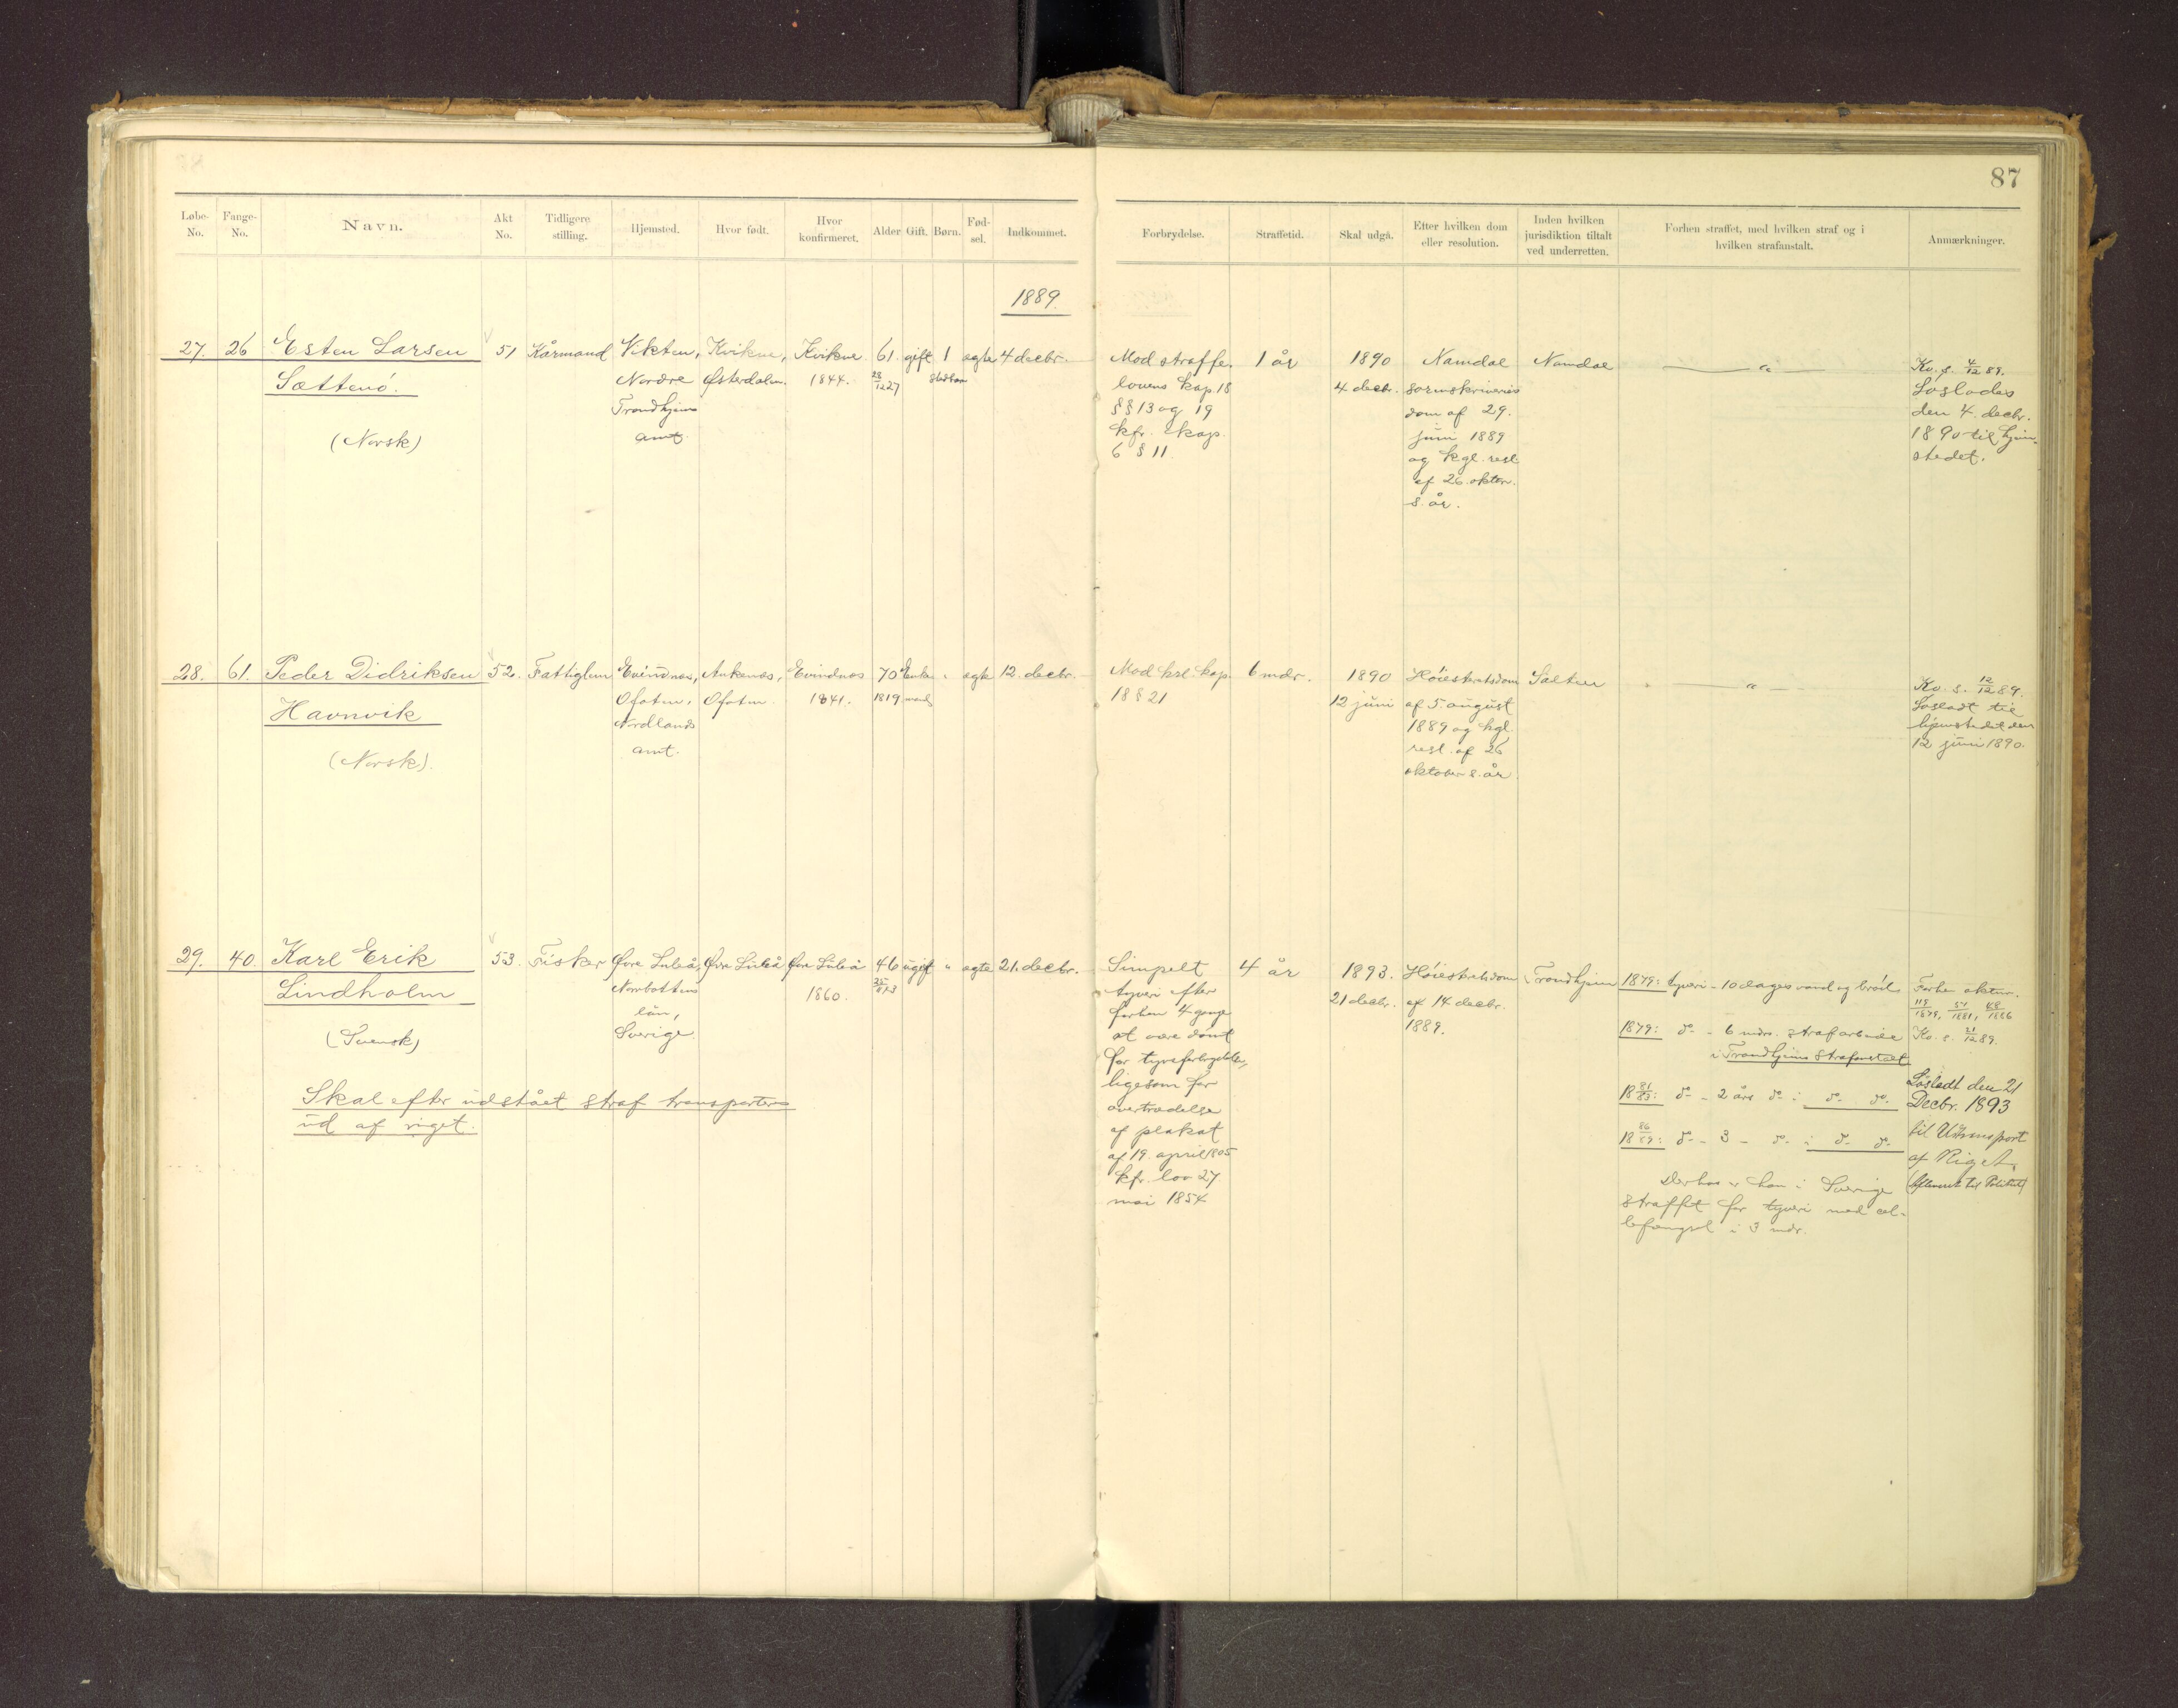 87
Løbe-No.
Fange-No.
Navn.
Akt No.
Tidligere stilling.
Hjemsted.
Hvor født.
Hvor konfirmeret.
Alder
Gift.
Børn.
Fød-sel.
Indkommet.
Forbrydelse.
Straffetid.
Skal udgå.
Efter hvilken dom eller resolution.
Inden hvilken jurisdiktion tiltalt ved underretten.
Forhen straffet, med hvilken straf og i hvilken strafanstalt.
Anmærkninger.
1889.
27.
26
Esten Larsen
Sættenó.
(Norsk)
51
Kårmand
Vikten,
Nordre
Trondhjems
amt.
Kvikne,
Østerdalen.
Kvikne
1844.
61.
28/12 27
gift
1
ægte
4 decbr.
Mod straffe.
lovens kap. 18
§§ 13 og 19
kfr. kap.
6 § 11.
1 år
1890
4 decbr.
Namdal
sorenskriveries
dom af 29.
juni 1889
og kgl. resl.
af 26. oktbr.
s. år.
Namdal
"
Kv. s. 4/12 89.
Løslades
den 4. decbr.
1890 til hjem-
stedet.
28.
61.
Peder Didriksen
Havnvik
(Norsk).
52.
Fattiglem
Evindnæs,
Ofoten,
Nordlands
amt.
Ankenæs,
Ofoten.
Evindnæs
1841.
70
1819
Enke
mand
"
ægte
12. decbr.
Mod krl. kap.
18 § 21
6 mdr.
1890
12 juni
Høiesteretsdom
af 5 august
1889 og kgl.
resl. af 26
oktober s. år
Salten
"
Kv. s. 12/12 89.
Løsladt til
hjemstedet den
12 juni 1890.
29.
40.
Karl Erik
Lindholm
(Svensk)
Skal efter udstået straf transporteres
ud af riget.
53.
Fisker
Øvre Luleå,
Norrbottens
län,
Sverige.
Øvre Luleå
Øvre Luleå
1860.
46
ugift
"
ægte
21. decbr.
Simpelt
tyveri efter
forhen 4 gange
at være dømt
for tyvsforbrydelse,
ligesom for
overtrædelse
af plakat
af 19. april 1805
kfr. lov 27
mai 1854
4 år
1893.
21 decbr.
Høiesteretsdom
af 14 decbr.
1889.
Trondhjem
1879: tyveri - 10 dages vand og brød.
1879: do - 6 mdrs. strafarbeide
i Trondhjems Strafanstalt
18 81/83: do - 2 års do i do do.
18 86/89: do - 3 - do. i do do.
Derhos er han i Sverige
straffet for tyveri med cel-
lefængsel i 3 mdr.
Forhen aktnr.
119/1879, 51/1881, 48/1886
Kv. s. 21/12 89.
Løsladt den 21
Decbr. 1893
til Udtransport
af Riget,
(afleveret til Politiet)